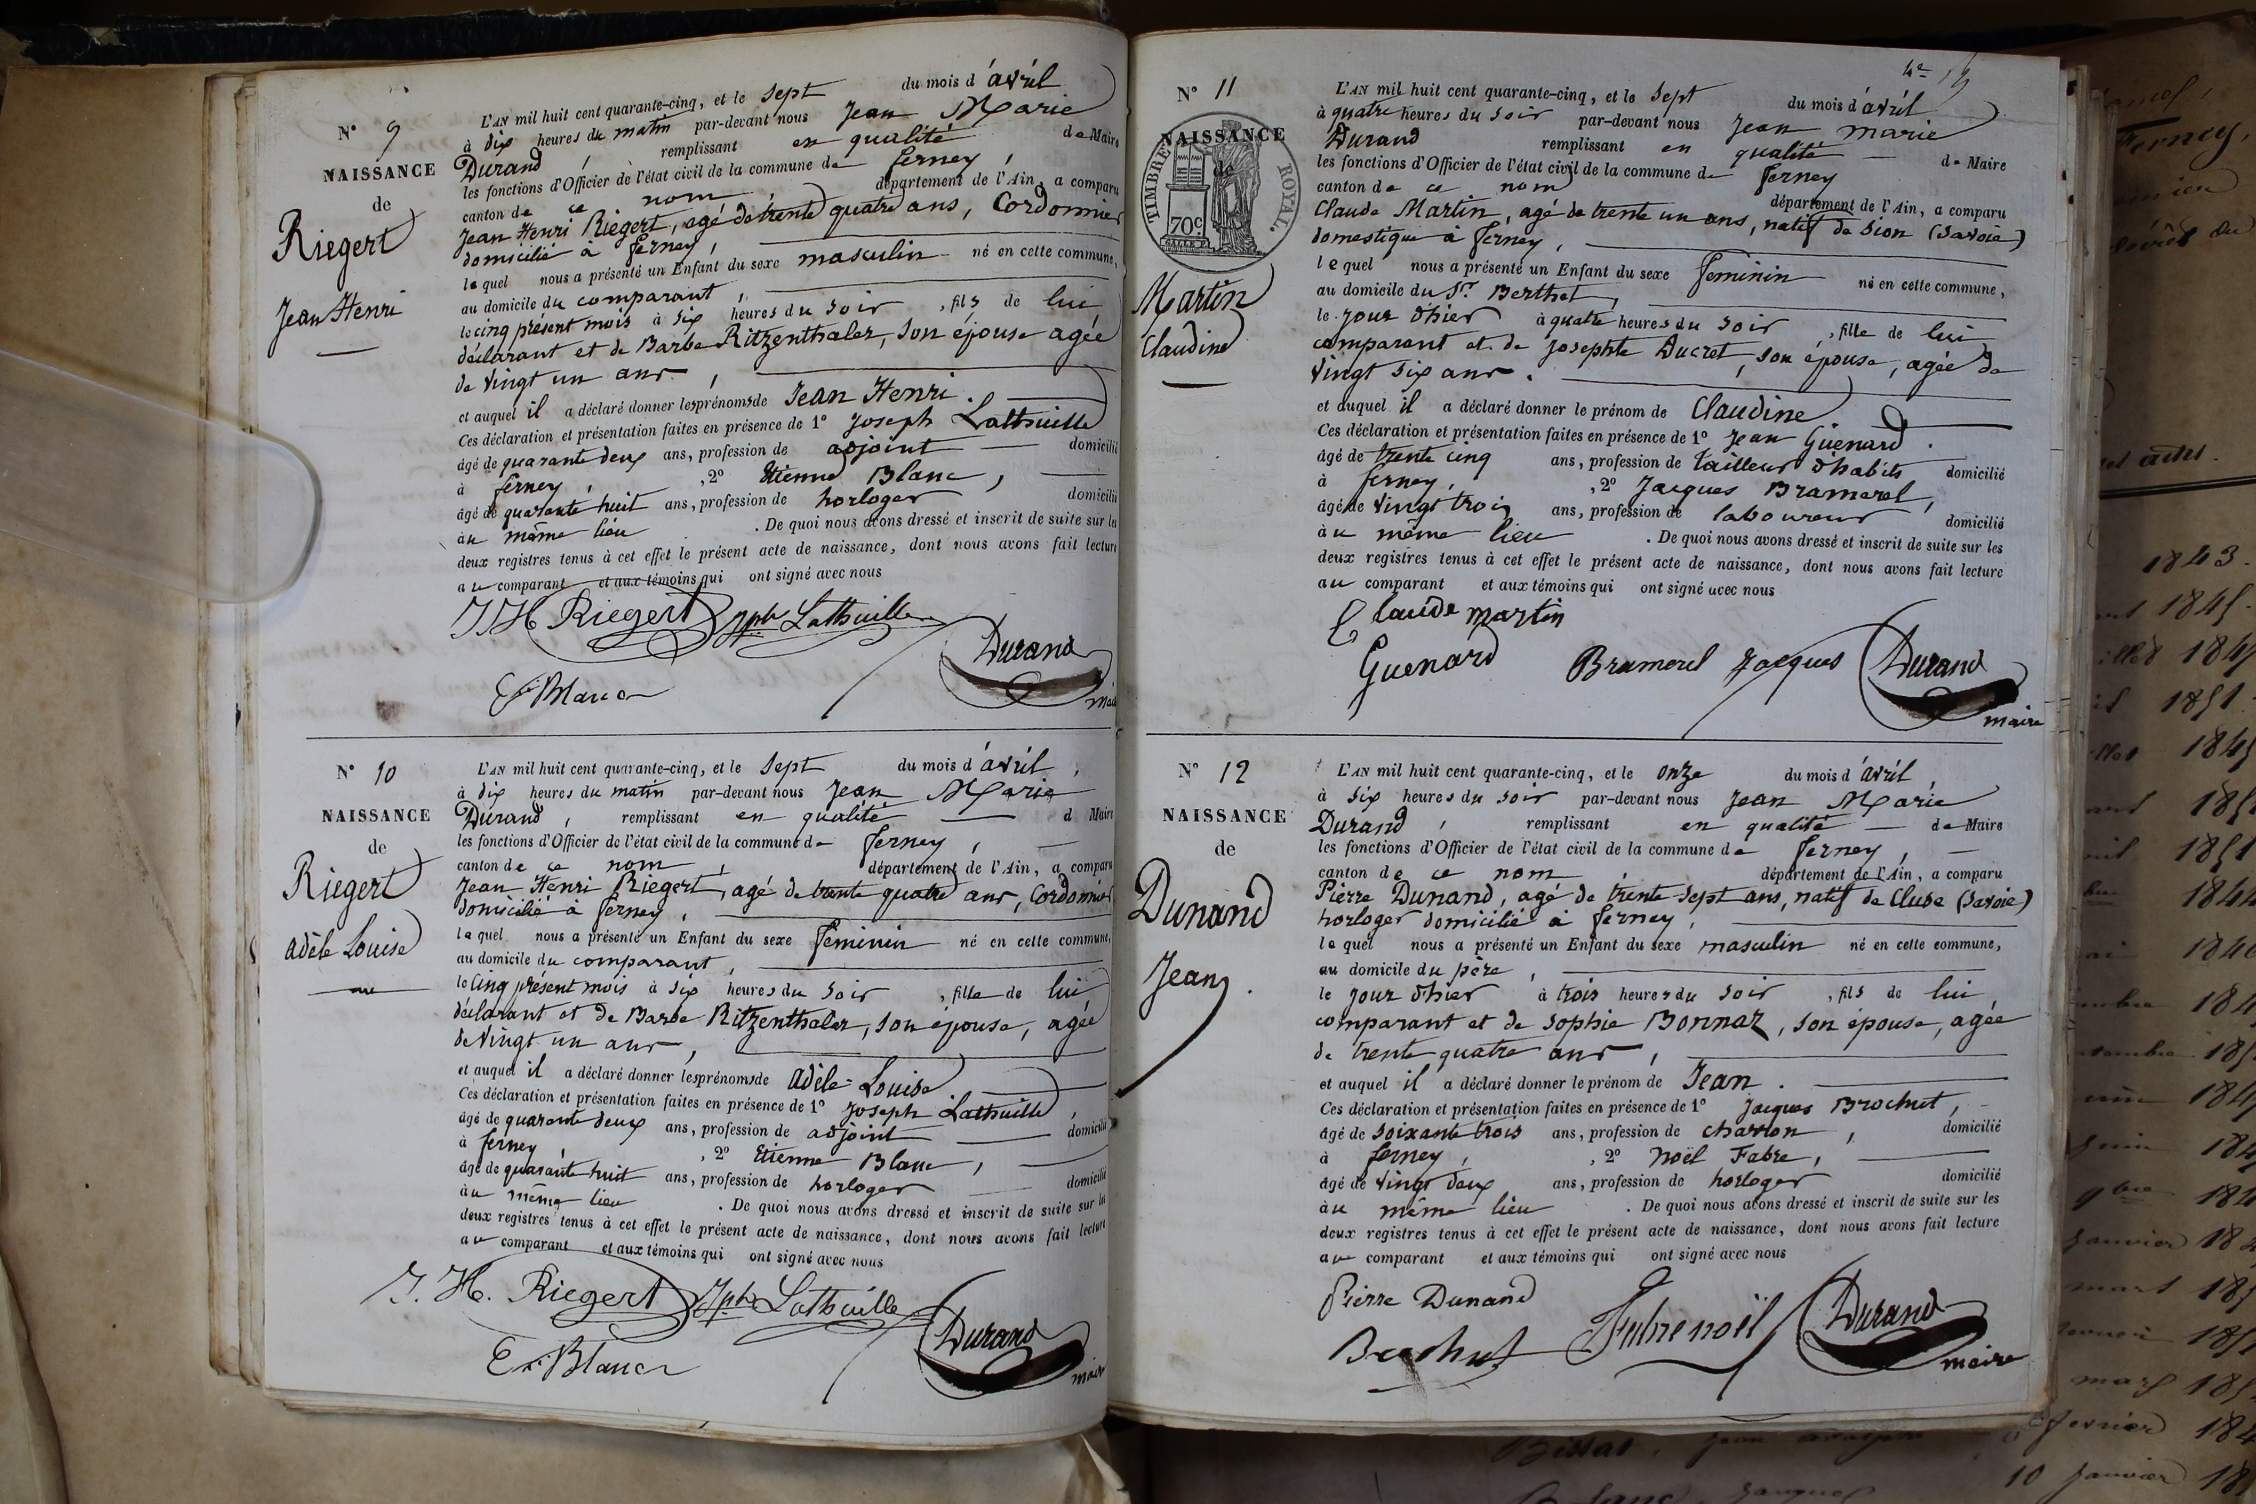 N° 9
NAISSANCE
de
Riegert
Jean Henri
L'AN mil huit cent quarante-cinq, et le sept du mois d'avril
à dix heures du matin par-devant nous Jean Marie
Durand, remplissant en qualité de Maire
les fonctions d'Officier de l'état civil de la commune de ferney,
canton de ce nom, département de l'Ain, a comparu
Jean Henri Riegert, agé de trente quatre ans, Cordonnier
domicilié à ferney,
lequel nous a présenté un Enfant du sexe masculin né en cette commune,
au domicile du comparant,
le cinq présent mois à six heures du soir, fils de lui
déclarant et de Barbe Ritzenthaler, son épouse agée
de vingt un ans,
et auquel il a déclaré donner les prénoms de Jean Henri.
Ces déclaration et présentation faites en présence de 1° Joseph Lathuille
âgé de quarante deux ans, profession de adjoint domicilié
à ferney, , 2° Etienne Blanc,
âgé de quarante huit ans, profession de horloger domicilié
au même lieu . De quoi nous avons dressé et inscrit de suite sur les
deux registres tenus à cet effet le présent acte de naissance, dont nous avons fait lecture
au comparant et aux témoins qui ont signé avec nous
J H Riegert Jph Lathuille
Durand
Et Blanc
N° 10
NAISSANCE
de
Riegert
adèle Louise
L'AN mil huit cent quarante-cinq, et le sept du mois d'avril,
à dix heures du matin par-devant nous Jean Marie
Durand, remplissant en qualité d Maire
les fonctions d'Officier de l'état civil de la commune de ferney,
canton de ce nom, département de l'Ain, a comparu
Jean Henri Riegert, agé de trente quatre ans, Cordonnier
domicilié à ferney,
lequel nous a présenté un Enfant du sexe féminin né en cette commune,
au domicile du comparant,
le cinq présent mois à six heures du soir, fille de lui
déclarant et de Barbe Ritzenthaler, son épouse, agée
de vingt un ans,
et auquel il a déclaré donner les prénoms de adèle-Louise
Ces déclaration et présentation faites en présence de 1° Joseph Lathuille,
âgé de quarante deux ans, profession de adjoint domicilié
à ferney, , 2° Etienne Blanc,
âgé de quarante huit ans, profession de horloger domicilié
au même lieu . De quoi nous avons dressé et inscrit de suite sur les
deux registres tenus à cet effet le présent acte de naissance, dont nous avons fait lecture
au comparant et aux témoins qui ont signé avec nous
J. H. Riegert Jph Lathuille
Durand
Et Blanc
maire
4e
N° 11
NAISSANCE
de
TIMBRE ROYAL.
70c.
Martin
Claudine
L'AN mil huit cent quarante-cinq, et le sept du mois d'avril
à quatre heures du soir par-devant nous Jean marie
Durand remplissant en qualité de Maire
les fonctions d'Officier de l'état civil de la commune de ferney
canton de ce nom département de l'Ain, a comparu
Claude Martin, agé de trente un ans, natif de Sion (Savoie)
domestique à ferney,
lequel nous a présenté un Enfant du sexe féminin né en cette commune,
au domicile du Sr. Berthet,
le jour d'hier à quatre heures du soir, fille de lui
comparant et de Josephte Ducret, son épouse, agée de
vingt six ans.
et auquel il a déclaré donner le prénom de Claudine
Ces déclaration et présentation faites en présence de 1° Jean Guénard.
âgé de trente cinq ans, profession de tailleur d'habits domicilié
à ferney, , 2° Jacques Bramerel,
âgé de vingt trois ans, profession de laboureur domicilié
au même lieu . De quoi nous avons dressé et inscrit de suite sur les
deux registres tenus à cet effet le présent acte de naissance, dont nous avons fait lecture
au comparant et aux témoins qui ont signé avec nous
Claude martin
Guenard Bramerel Jacques Durand
maire
N° 12
NAISSANCE
de
Dunand
Jean.
L'AN mil huit cent quarante-cinq, et le onze du mois d'avril,
à six heures du soir par-devant nous Jean Marie
Durand, remplissant en qualité de Maire
les fonctions d'Officier de l'état civil de la commune de ferney,
canton de ce nom département de l'Ain, a comparu
Pierre Dunand, agé de trente sept ans, natif de Cluse (Savoie)
horloger domicilié à ferney,
lequel nous a présenté un Enfant du sexe masculin né en cette commune,
au domicile du père,
le jour d'hier à trois heures du soir, fils de lui
comparant et de Sophie Bonnaz, son épouse, agée
de trente quatre ans,
et auquel il a déclaré donner le prénom de Jean.
Ces déclaration et présentation faites en présence de 1° Jacques Brochut,
âgé de soixante trois ans, profession de charron, domicilié
à ferney, , 2° Noël Fabre,
âgé de vingt deux ans, profession de horloger domicilié
au même lieu . De quoi nous avons dressé et inscrit de suite sur les
deux registres tenus à cet effet le présent acte de naissance, dont nous avons fait lecture
au comparant et aux témoins qui ont signé avec nous
Pierre Dunand
Brochut Fabre noël Durand
maire
Ferney,
1843.
1845.
1851
1851
janvier
mars
mars
fevrier
10 janvier